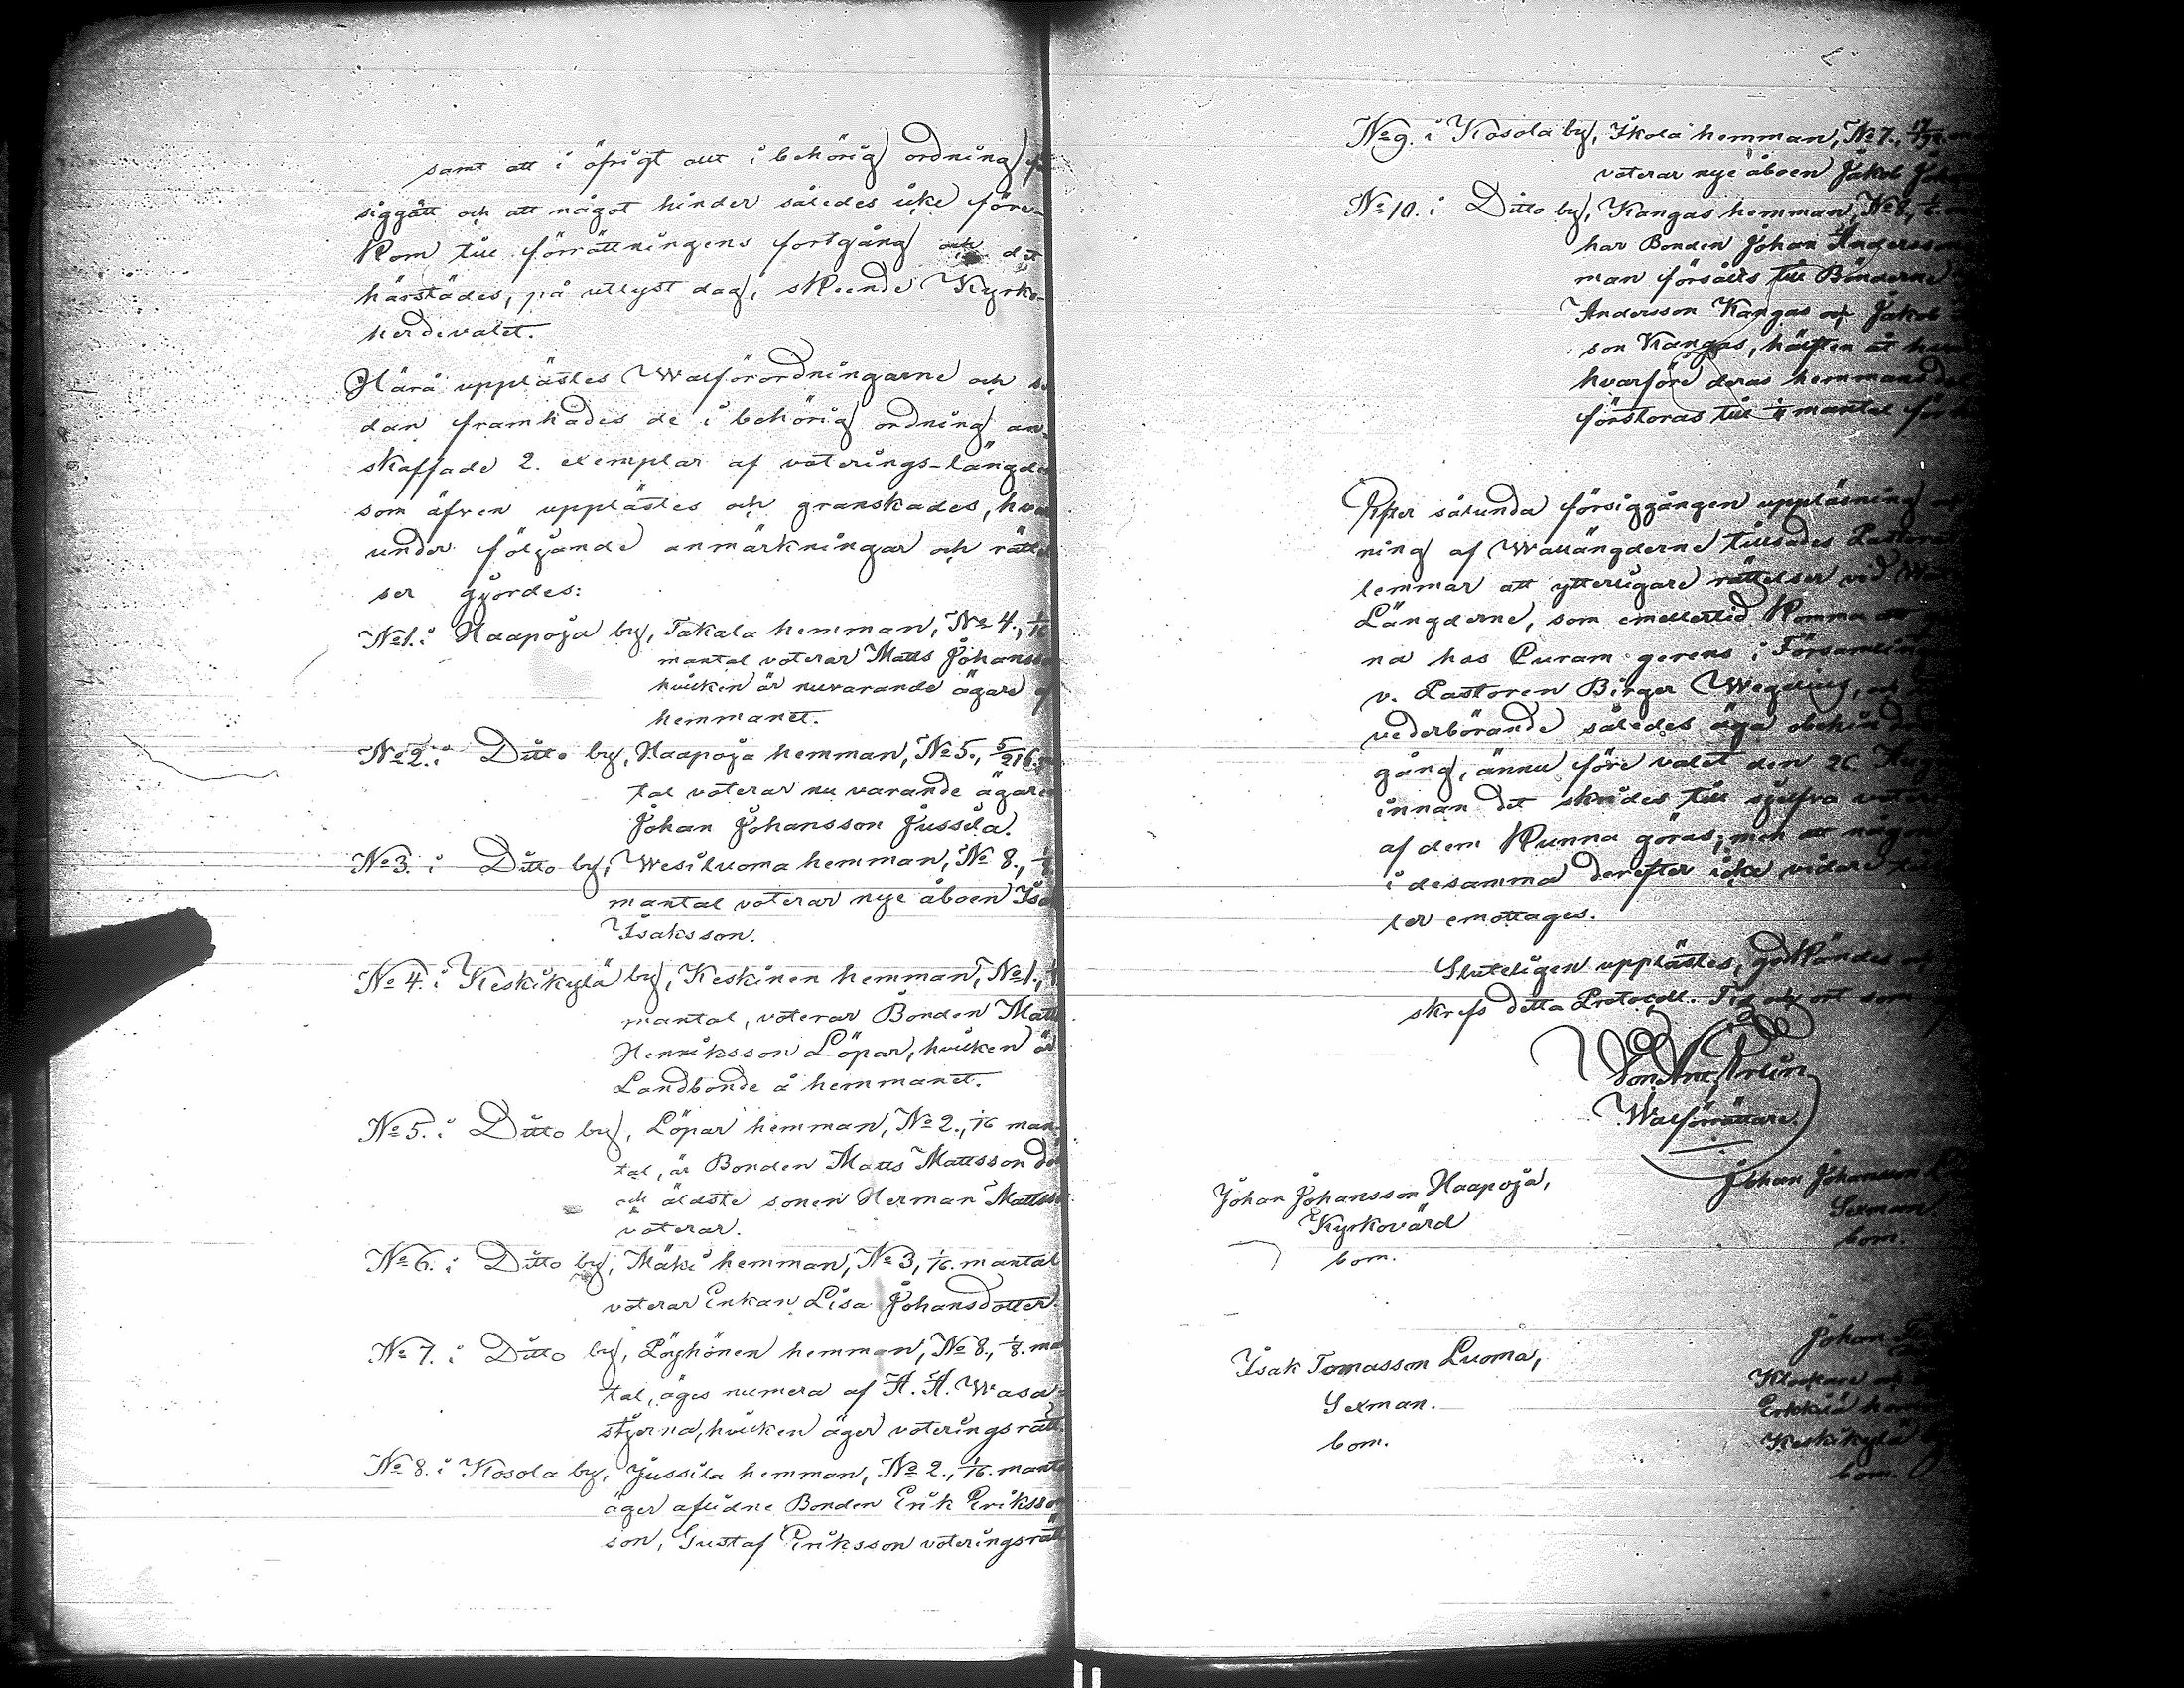 samt att i öfrigt allt i behörig ordning
siggått och att något hinder således icke före-
kom till förrättningens fortgång och det
härstädes, på utlyst dag, skeende Kyrko-
herdevalet.
Härå upplästes Walförordningarne och
dan framhades de i behörig ordning an-
skaffade 2. exemplar af voterings-längde
som äfven upplästes och granskades, hvar
under följande anmärkningar och rättel
ser gjordes:
No 1. i Haapoja by, Takala hemman, No 4., 1/16
mantal voterar Matts Johansson
hvilken är nuvarande ägare af
hemmanet.
No 2. i Ditto by, Haapoja hemman, No 5., 5/216.
tal voterar nu varande ägaren
Johan Johansson Jussila.
No 3. i Ditto by, Wesiluoma hemman, No 8.,
mantal voterar nye åboen Isak
Isaksson.
No 4. i Keskikylä by, Keskinen hemman, No 1.,
mantal, voterar Bonden Matts
Henriksson Löpar, hvilken är
Landbonde å hemmanet.
No 5. i Ditto by, Löpar hemman, No 2., 1/16 man-
tal, är Bonden Matts Mattsson död
och äldste sonen Herman Mattsson
voterar.
No 6. i Ditto by, Mäki hemman, No 3, 1/16. mantal
voterar Enkan Lisa Johansdotter.
No 7. i Ditto by, Löyhönen hemman, No 8., 1/8. man
tal, äges numera af A. A. Wasa-
stjerna, hvilken äger voteringsrätt.
No 8. i Kosola by, Jussila hemman, No 2., 1/16. mantal
äger aflidne Bonden Erik Eriksson
son, Gustaf Eriksson voteringsrätt
No 9. i Kosola by, Ikola hemman, No 7.,
voterar nye åboen Jakob
No 10. i Ditto by, Kangas hemman, No 8.,
har Bonden Johan Andersson
man försålts till Bönderne
Andersson Kangas och Jakob
son Kangas, hälften åt
hvarföre deras hemmansdel
förstoras till mantal för
Efter sålunda försiggången uppläsning
ning af Wallängderne tillsades
lemmar att ytterligare rättelser vid
Längderne, som emellertid komma att
na hos Curam gerens i Församling
v. Pastoren Birger Wegelius, och
vederbörande således äga obehindrad
gång, ännu före valet den 26. Aug
innan det skrides till sjelfva voter
af dem kunna göras; men att någon
i desamma derefter icke vidare
ler emottages.
Slutligen upplästes, godkändes
skrefs detta Protocoll. Tid och ort som
Walförrättare.
Johan Johansson Haapoja,
Kyrkovärd
bom.
Johan Johansson
Sexman
bom.
Isak Tomasson Luoma,
Sexman.
bom.
Johan
Klockare och
Erkkilä
Keskikylä
bom.